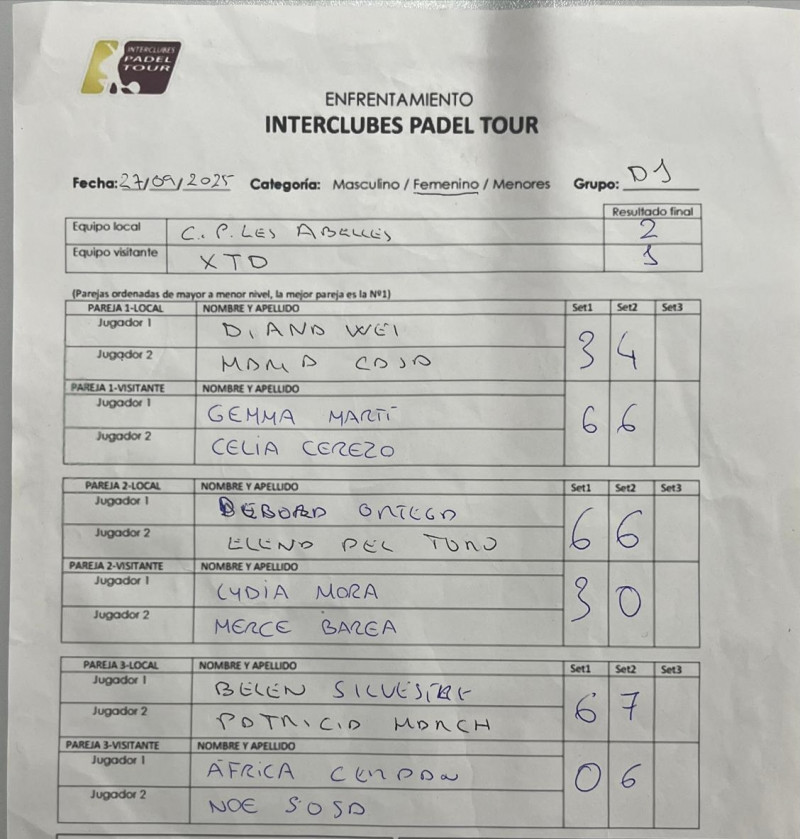 INTERCLUBES
PADEL
TOUR
ENFRENTAMIENTO
INTERCLUBES PADEL TOUR
Fecha: 27/09/2025 Categoría: Masculino / Femenino / Menores Grupo: D1
Resultado final
Equipo local C.P. LES ABELLES 2
Equipo visitante XTD 1
(Parejas ordenadas de mayor a menor nivel, la mejor pareja es la Nº1)
PAREJA 1-LOCAL NOMBRE Y APELLIDO Set1 Set2 Set3
Jugador 1 DIANA WEI
Jugador 2 3 4
PAREJA 1-VISITANTE NOMBRE Y APELLIDO
Jugador 1 GEMMA MARTÍ
Jugador 2 CELIA CEREZO 6 6
PAREJA 2-LOCAL NOMBRE Y APELLIDO Set1 Set2 Set3
Jugador 1 DEBORA ORTEGA
Jugador 2 ELENA DEL TORO 6 6
PAREJA 2-VISITANTE NOMBRE Y APELLIDO
Jugador 1 LYDIA MORA
Jugador 2 MERCE BAREA 3 0
PAREJA 3-LOCAL NOMBRE Y APELLIDO Set1 Set2 Set3
Jugador 1 BELEN SILVESTRE
Jugador 2 PATRICIA MARCH 6 7
PAREJA 3-VISITANTE NOMBRE Y APELLIDO
Jugador 1 ÁFRICA
Jugador 2 NOE SOSA 0 6